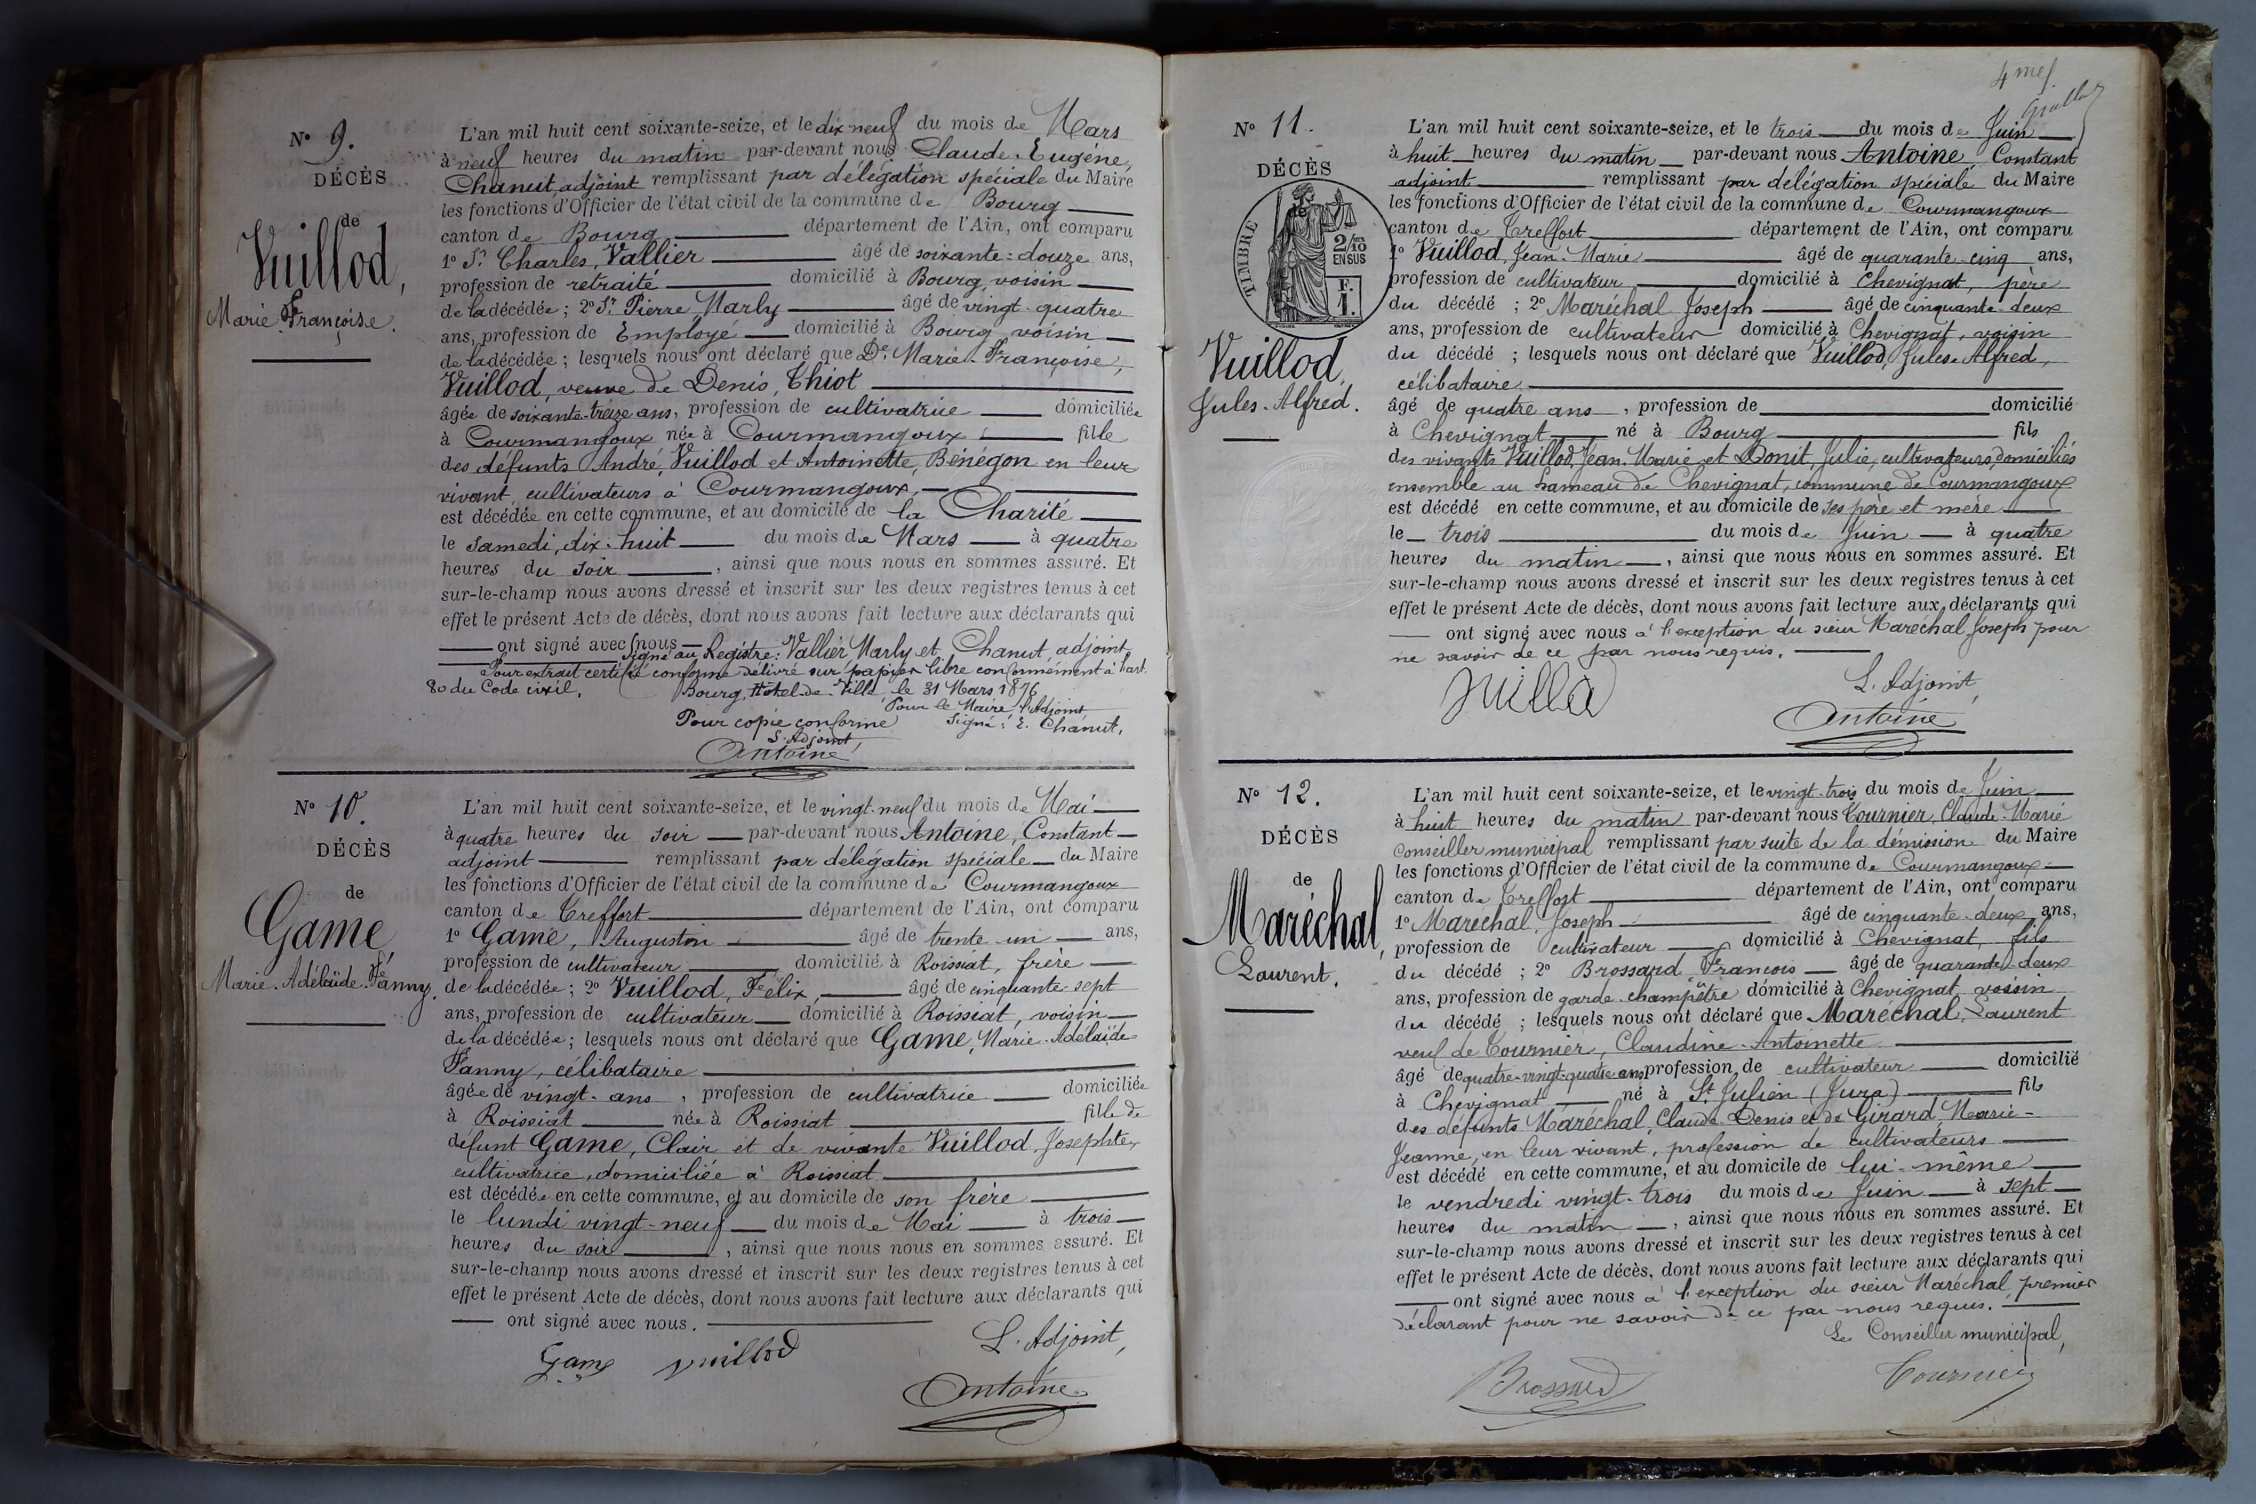 N° 9.
DÉCÈS
de
Vuillod,
Marie Françoise.
L'an mil huit cent soixante-seize, et le dix neuf du mois de Mars
à neuf heures du matin par-devant nous Claude-Eugène,
Chanut, adjoint remplissant par délégation spéciale du Maire
les fonctions d'Officier de l'état civil de la commune de Bourg
canton de Bourg département de l'Ain, ont comparu
1° Sr Charles, Vallier âgé de soixante-douze ans,
profession de retraité domicilié à Bourg, voisin
de la décédée ; 2° Sr Pierre Marly âgé de vingt-quatre
ans, profession de Employé domicilié à Bourg voisin
de la décédée ; lesquels nous ont déclaré que De Marie-Françoise,
Vuillod, veuve de Denis, Thiot
âgée de soixante-treize ans, profession de cultivatrice domiciliée
à Courmangoux née à Courmangoux fille
des défunts André, Vuillod et Antoinette, Bénégon en leur
vivant, cultivateurs à Courmangoux,
est décédée en cette commune, et au domicile de la Charité
le samedi, dix-huit du mois de Mars à quatre
heures du soir , ainsi que nous nous en sommes assuré. Et
sur-le-champ nous avons dressé et inscrit sur les deux registres tenus à cet
effet le présent Acte de décès, dont nous avons fait lecture aux déclarants qui
ont signé avec nous
Signé au Registre : Vallier Marly et Chanut, adjoint
Pour extrait certifié conforme délivré sur papier libre conformément à l'art.
80 du Code civil. Bourg, Hôtel-de-Ville, le 31 Mars 1876
Pour le Maire, l'Adjoint
Pour copie conforme Signé : E. Chanut.
L'Adjoint,
Antoine
N° 10.
DÉCÈS
de
Game,
Marie-Adélaïde-Fanny.
L'an mil huit cent soixante-seize, et le vingt-neuf du mois de Mai
à quatre heures du soir par-devant nous Antoine, Constant
adjoint remplissant par délégation spéciale du Maire
les fonctions d'Officier de l'état civil de la commune de Courmangoux
canton de Treffort département de l'Ain, ont comparu
1° Game, Augustin âgé de trente-un ans,
profession de cultivateur domicilié à Roissiat, frère
de la décédée ; 2° Vuillod, Félix, âgé de cinquante-sept
ans, profession de cultivateur domicilié à Roissiat, voisin
de la décédée ; lesquels nous ont déclaré que Game, Marie-Adélaïde
Fanny, célibataire
âgée de vingt-ans , profession de cultivatrice domiciliée
à Roissiat née à Roissiat fille de
défunt Game, Clair et de vivante Vuillod, Josephte,
cultivatrice, domiciliée à Roissiat
est décédée en cette commune, et au domicile de son frère
le lundi vingt-neuf du mois de Mai à trois
heures du soir , ainsi que nous nous en sommes assuré. Et
sur-le-champ nous avons dressé et inscrit sur les deux registres tenus à cet
effet le présent Acte de décès, dont nous avons fait lecture aux déclarants qui
ont signé avec nous.
Game Vuillod L'Adjoint,
Antoine
N° 11.
DÉCÈS
TIMBRE
2/10
EN SUS
F.
1.
Vuillod,
Jules-Alfred.
L'an mil huit cent soixante-seize, et le trois du mois de Juin
à huit heures du matin par-devant nous Antoine, Constant
adjoint remplissant par délégation spéciale du Maire
les fonctions d'Officier de l'état civil de la commune de Courmangoux
canton de Treffort département de l'Ain, ont comparu
1° Vuillod, Jean-Marie âgé de quarante-cinq ans,
profession de cultivateur domicilié à Chevignat, père
du décédé ; 2° Maréchal Joseph âgé de cinquante-deux
ans, profession de cultivateur domicilié à Chevignat, voisin
du décédé ; lesquels nous ont déclaré que Vuillod, Jules-Alfred,
célibataire
âgé de quatre ans , profession de domicilié
à Chevignat né à Bourg fils
des vivants Vuillod, Jean-Marie et Donit, Julie, cultivateurs, domiciliés
ensemble au hameau de Chevignat, commune de Courmangoux
est décédé en cette commune, et au domicile de ses père et mère
le trois du mois de Juin à quatre
heures du matin , ainsi que nous nous en sommes assuré. Et
sur-le-champ nous avons dressé et inscrit sur les deux registres tenus à cet
effet le présent Acte de décès, dont nous avons fait lecture aux déclarants qui
ont signé avec nous à l'exception du sieur Maréchal Joseph pour
ne savoir de ce par nous requis.
L'Adjoint,
Antoine
N° 12.
DÉCÈS
de
Maréchal,
Laurent.
L'an mil huit cent soixante-seize, et le vingt-trois du mois de Juin
à huit heures du matin par-devant nous Tournier, Claude-Marie
Conseiller municipal remplissant par suite de la démission du Maire
les fonctions d'Officier de l'état civil de la commune de Courmangoux
canton de Treffort département de l'Ain, ont comparu
1° Maréchal, Joseph âgé de cinquante-deux ans,
profession de cultivateur domicilié à Chevignat, fils
du décédé ; 2° Brossard François âgé de quarante-deux
ans, profession de garde-champêtre domicilié à Chevignat voisin
du décédé ; lesquels nous ont déclaré que Maréchal, Laurent
veuf de Tournier, Claudine-Antoinette
âgé de quatre-vingt-quatre ans profession de cultivateur domicilié
à Chevignat né à St Julien (Jura) fils
des défunts Maréchal, Claude Denis et de Girard, Marie-
Jeanne, en leur vivant, profession de cultivateurs
est décédé en cette commune, et au domicile de lui-même
le vendredi vingt-trois du mois de Juin à sept
heures du matin , ainsi que nous nous en sommes assuré. Et
sur-le-champ nous avons dressé et inscrit sur les deux registres tenus à cet
effet le présent Acte de décès, dont nous avons fait lecture aux déclarants qui
ont signé avec nous à l'exception du sieur Maréchal, premier
déclarant pour ne savoir de ce par nous requis.
Le Conseiller municipal,
Brossard Tournier